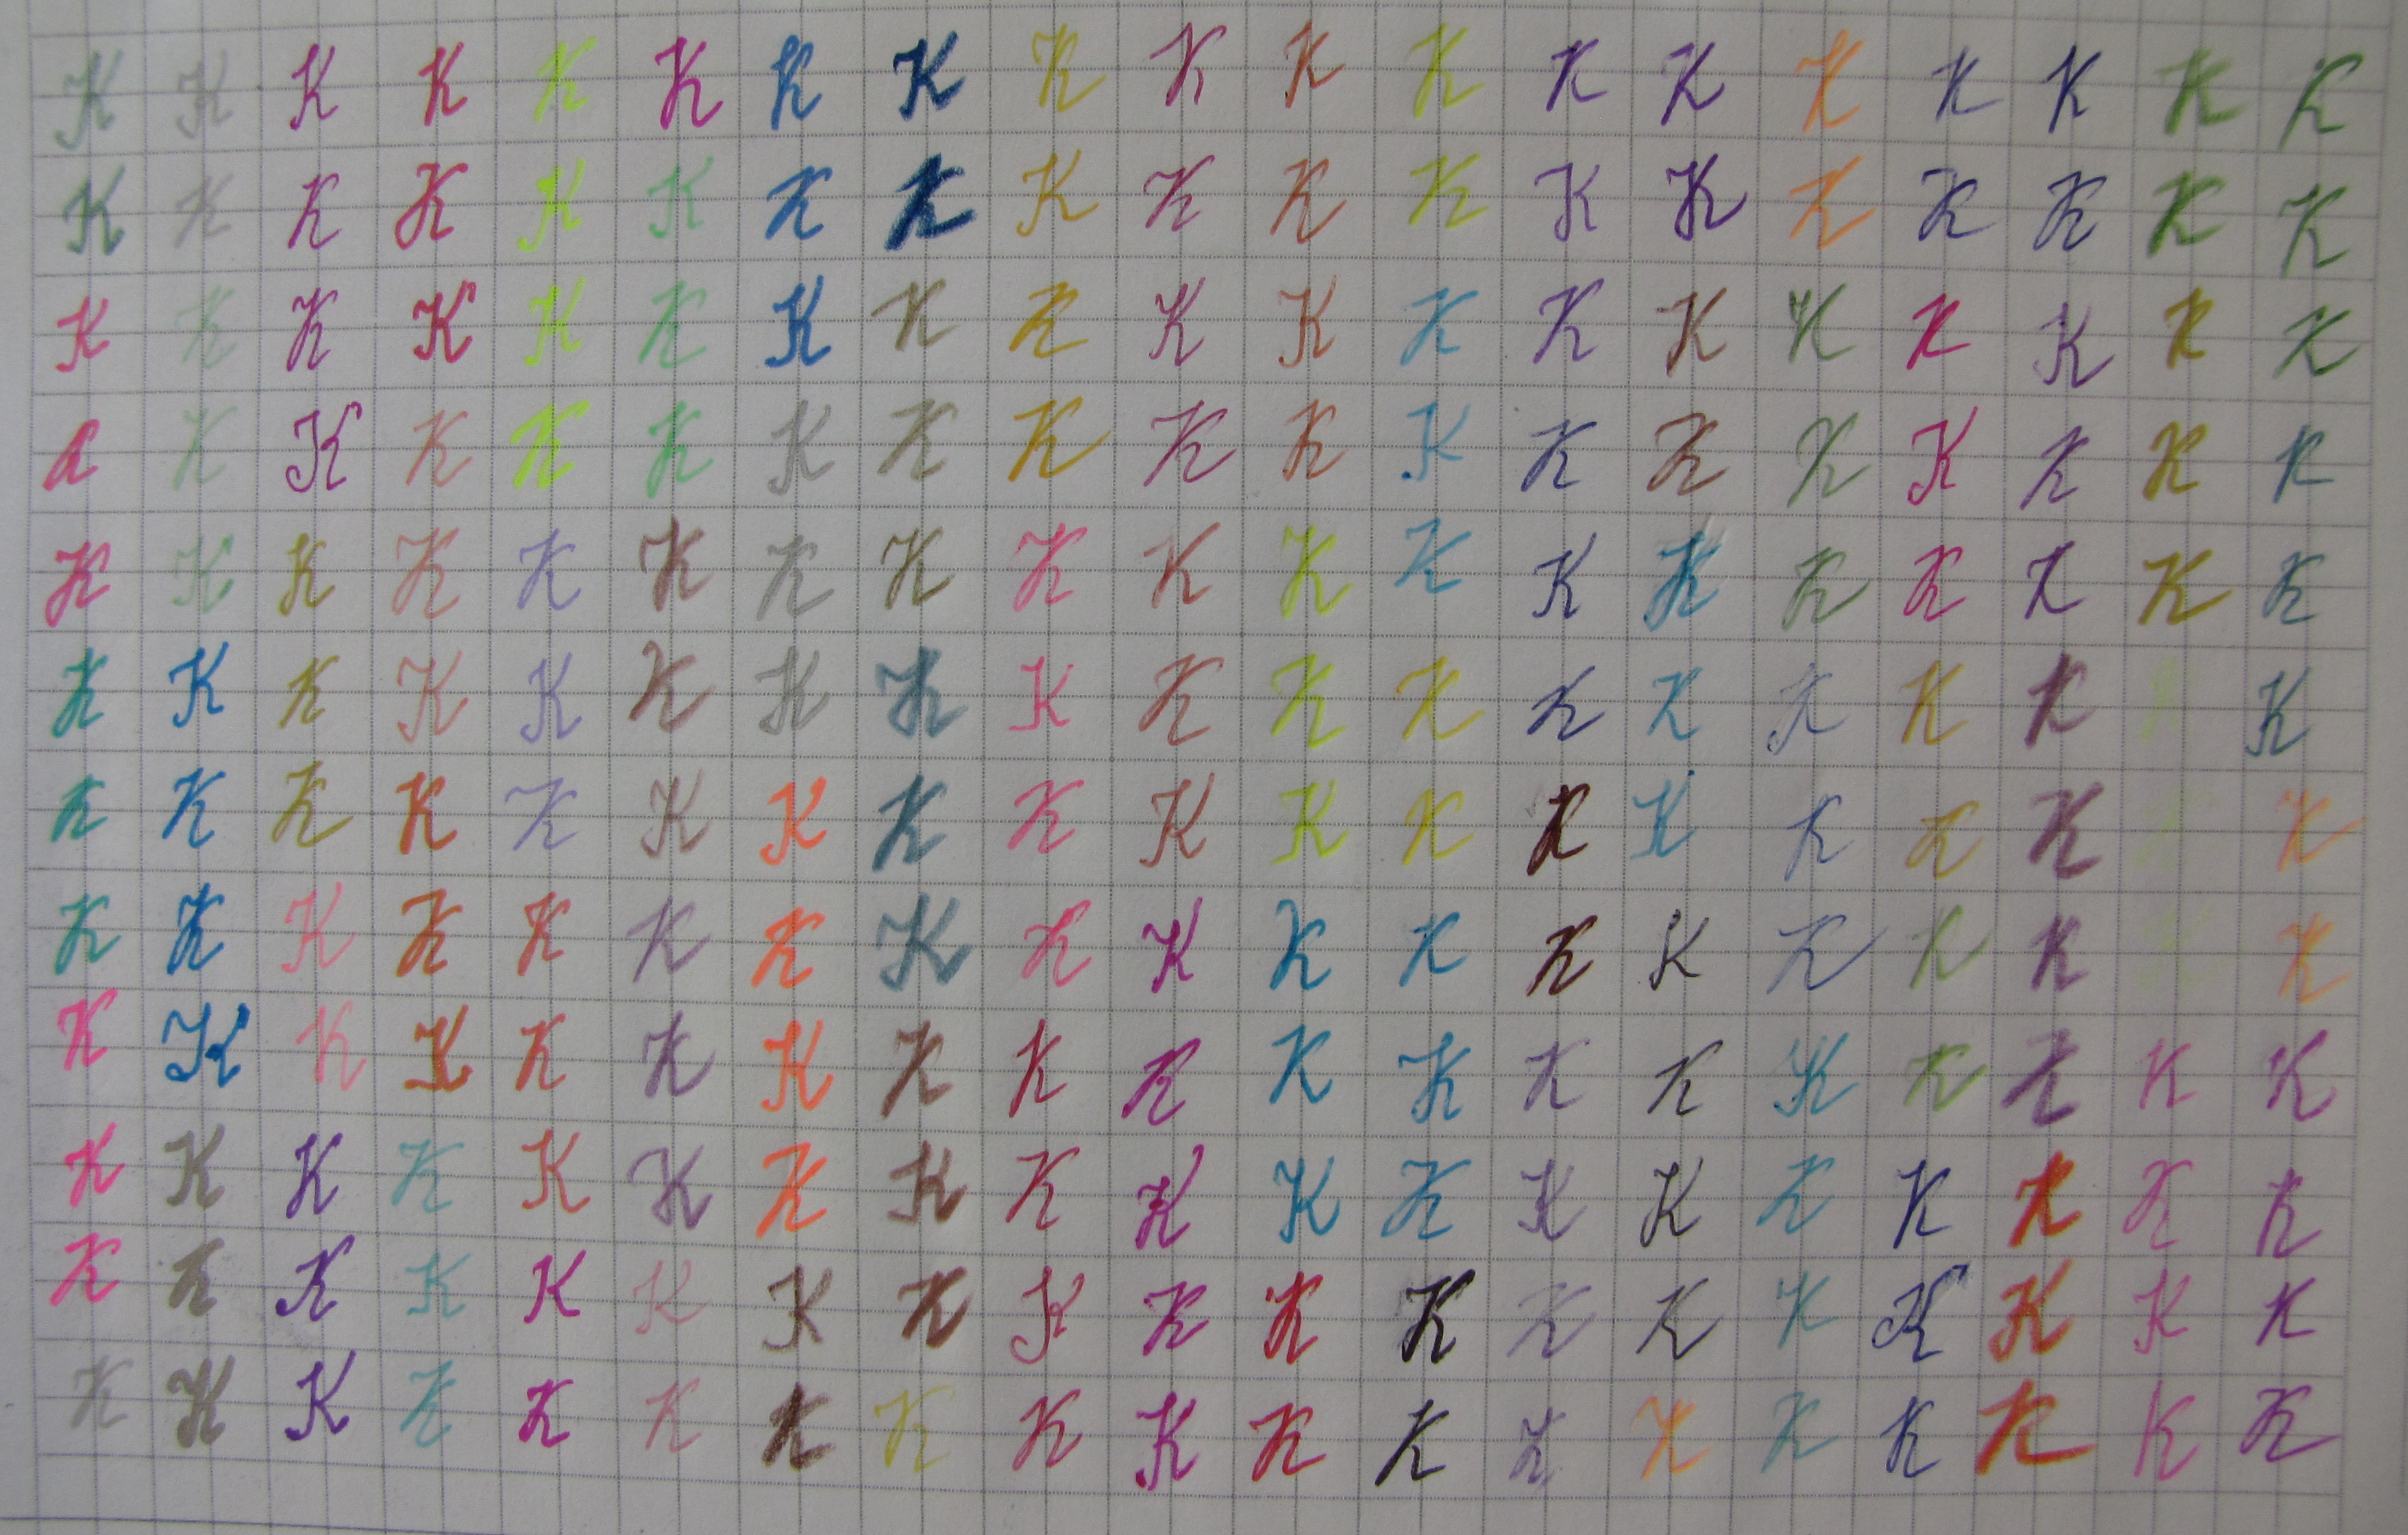 K K K K K K K K K K K K K K K K K K K
K K K K K K K K K K K K K K K K K K K
K K K K K K K K K K K K K K K K K K K
K K K K K K K K K K K K K K K K K K K
K K K K K K K K K K K K K K K K K K K
K K K K K K K K K K K K K K K K K K K
K K K K K K K K K K K K K K K K K K K
K K K K K K K K K K K K K K K K K K K
K K K K K K K K K K K K K K K K K K K
K K K K K K K K K K K K K K K K K K K
K K K K K K K K K K K K K K K K K K K
K K K K K K K K K K K K K K K K K K K